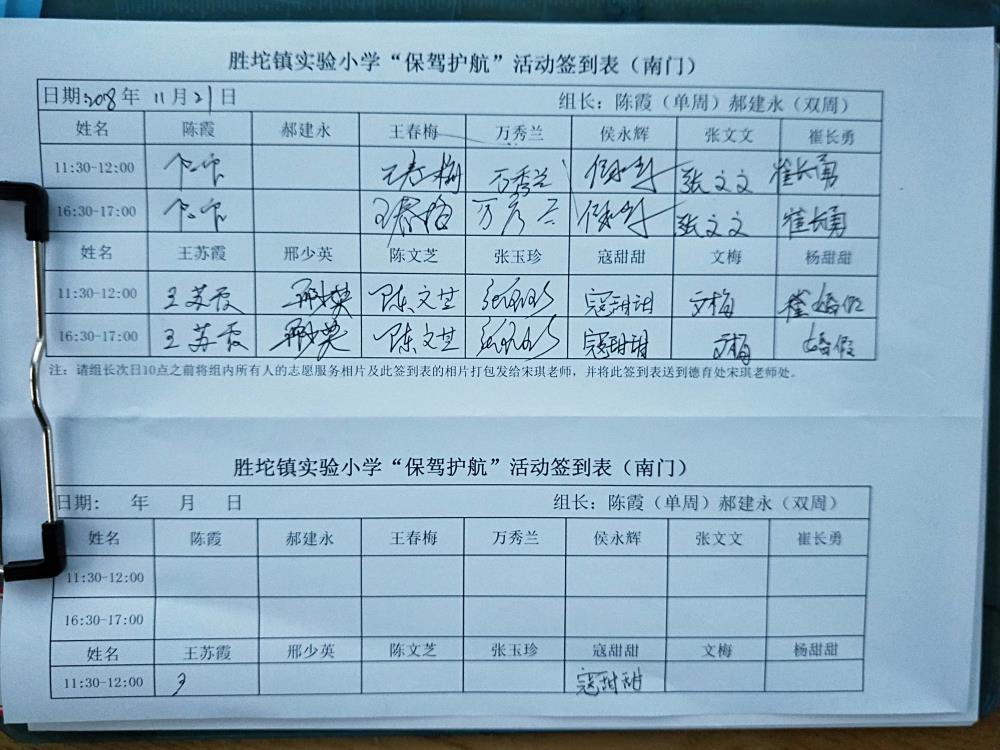 胜坨镇实验小学“保驾护航”活动签到表（南门）
日期:2018年 11月21日 组长：陈霞（单周）郝建永（双周）
姓名 陈霞 郝建永 王春梅 万秀兰 侯永辉 张文文 崔长勇
11:30-12:00 王春梅 万秀兰 张文文 崔长勇
16:30-17:00 王春梅 万秀兰 张文文 崔长勇
姓名 王苏霞 邢少英 陈文芝 张玉珍 寇甜甜 文梅 杨甜甜
11:30-12:00 王苏霞 邢少英 陈文芝 张玉珍 寇甜甜 文梅 婚假
16:30-17:00 王苏霞 邢少英 陈文芝 张玉珍 寇甜甜 文梅 婚假
注：请组长次日10点之前将组内所有人的志愿服务相片及此签到表的相片打包发给宋琪老师，并将此签到表送到德育处宋琪老师处。
胜坨镇实验小学“保驾护航”活动签到表（南门）
日期: 年 月 日 组长：陈霞（单周）郝建永（双周）
姓名 陈霞 郝建永 王春梅 万秀兰 侯永辉 张文文 崔长勇
11:30-12:00
16:30-17:00
姓名 王苏霞 邢少英 陈文芝 张玉珍 寇甜甜 文梅 杨甜甜
11:30-12:00 寇甜甜